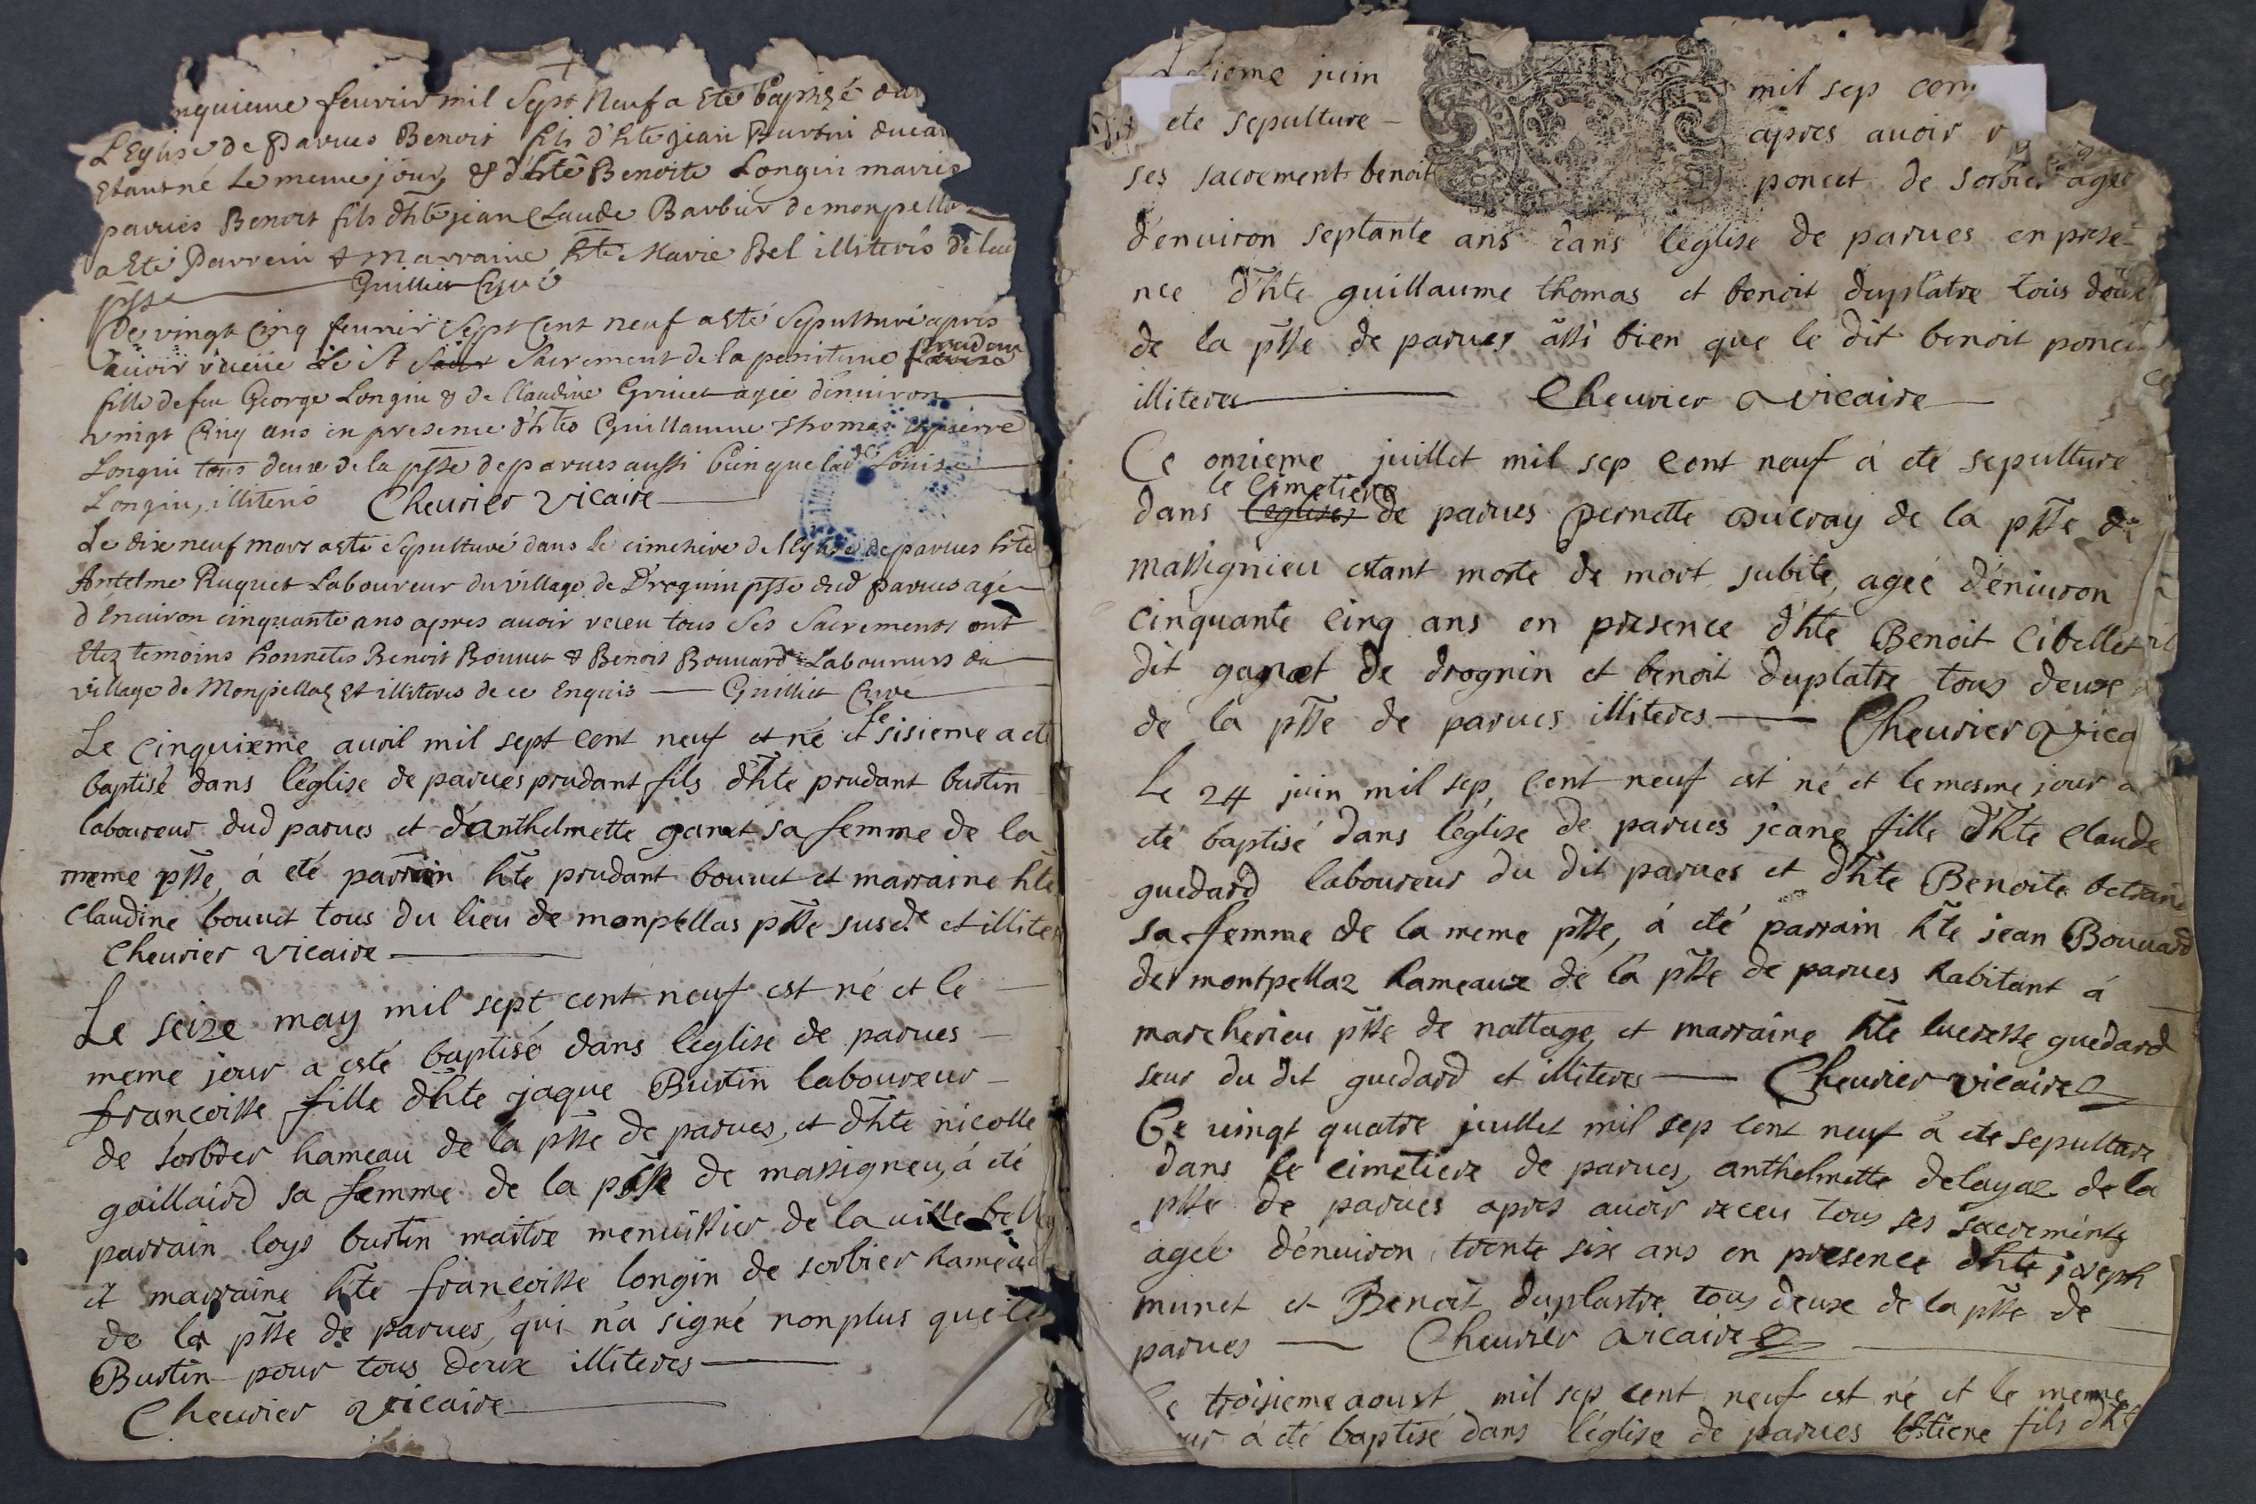 nquieme feuvrir mil Sept Neuf a Eté baptizé da
L'Eglise de Parves Benoit fils d'hte Jean Burtin
Etant né le meme jour & d'hte Benoite Longin
parves Benoit fils d'hte jean Claude Barbier de monpella
a Eté Parrein & Marraine hte Marie Bel illiteres de lad
psse Guillier Curé
Le vingt cinq feuvrir Sept Cent neuf a esté Sepulturé apres
auoir receue le St Sacrement de la penitence
fille de feu George Longin & de Claudine Grivet agée d'enuiron
vingt Cinq ans en presence d'htes Guillaume Thomas & pierre
Longin tous deux de la psse de parves aussi bien que lad Louise
Longin, illiteres Cheurier Vicaire
Le dix neuf mars a esté Sepulturé dans le cimetiere de l'Eglise de parves hte
Antelme Ruquet Laboureur du village de Drognin psse dud Parves agé
d'Enuiron cinquante ans apres auoir receu tous Ses Sacrements ont
Etez temoins honnetes Benoit Bouuet & Benoit Bouuard Laboureurs du
village de Monpellaz Et illiteres de ce Enquis Guillier Cure
Le cinquieme auril mil sept cent neuf et né et le sisieme a eté
baptisé dans l'église de parues prudant fils d'hte prudant burtin
laboureur dud parues et d'anthelmette ganet sa femme de la
meme psse, à eté parrain hte prudant bouuet et marraine hte
Claudine bouuet tous du lieu de monpellas psse susde et illiter
Cheurier Vicaire
Le seize may mil sept cent neuf est né et le
meme jour a esté baptisé dans l'eglise de parues
francoisse fille d'hte jaque Burtin laboureur
de sorbier hameau de la psse de parues, et d'hte nicolle
gaillaird sa femme de la psse de massigneu, à été
parrain loys burtin maitre menuissier de la uille belle
et marraine hte francoisse longin de sorbier hameau
de la psse de parues, qui n'a signé non plus que le
Burtin pour tous deux illiteres
Cheurier Vicaire
ieme juin mil sep cen
eté sepulture apres auoir
ses sacrement benoit poncet de sorbier agé
d'enuiron septante ans dans l'eglise de parues en prese
nce d'hte guillaume thomas et benoit duplatre tous deux
de la psse de parues assi bien que le dit benoit poncet
illiteres Cheurier Vicaire
Ce onzieme juillet mil sep cent neuf à eté sepulture
le cimetiere
dans l'eglise de parues pernette Ducray de la psse de
massignieu estant morte de mort subite, ageé d'éniuron
cinquante cinq ans en presence d'hte Benoit Cibellet
dit ganet de drognin et benoit duplatre tous deux
de la psse de parues illiteres Cheurier Vica
Le 24 juin mil sep cent neuf est né et le mesme jour a
eté baptisé dans l'eglise de parues jeane fille d'hte claude
guedard laboureur du dit parues et d'hte Benoite
sa femme de la meme psse, à eté parrain hte jean Bouuard
de montpellaz hameaux de la psse de parues habitant à
marcherieu psse de nattage, et marraine hte lucresse guedard
seur du dit guedard et illiteres Cheurier Vicaire
Ce uingt quatre juillet mil sep cent neuf à eté sepulture
dans le cimetiere de parues, anthelmette delayaz de la
psse de parues apres auoir receu tous ses sacrements
ageé d'enuiron trente six ans en presence d'hte joseph
munet et Benoit duplastre tous deux de la psse de
parues Cheurier Vicaire
Le troisieme aoust mil sep cent neuf est né et le meme
ur à eté baptisé dans l'église de parues Estiene fils d'hte